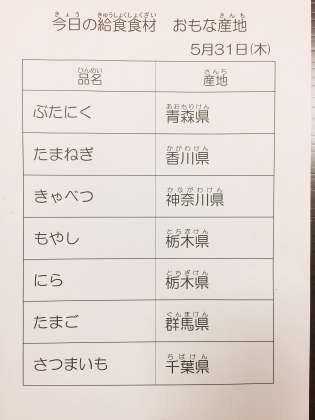 今日の給食食材 おもな産地
5月31日(木)
品名 産地
ぶたにく 青森県
たまねぎ 香川県
きゃべつ 神奈川県
もやし 栃木県
にら 栃木県
たまご 群馬県
さつまいも 千葉県